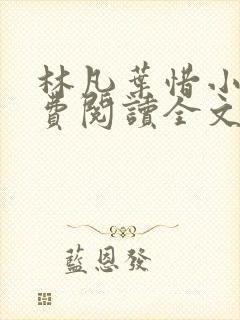 林凡葉惜小
費閱讀全文
藍恩發